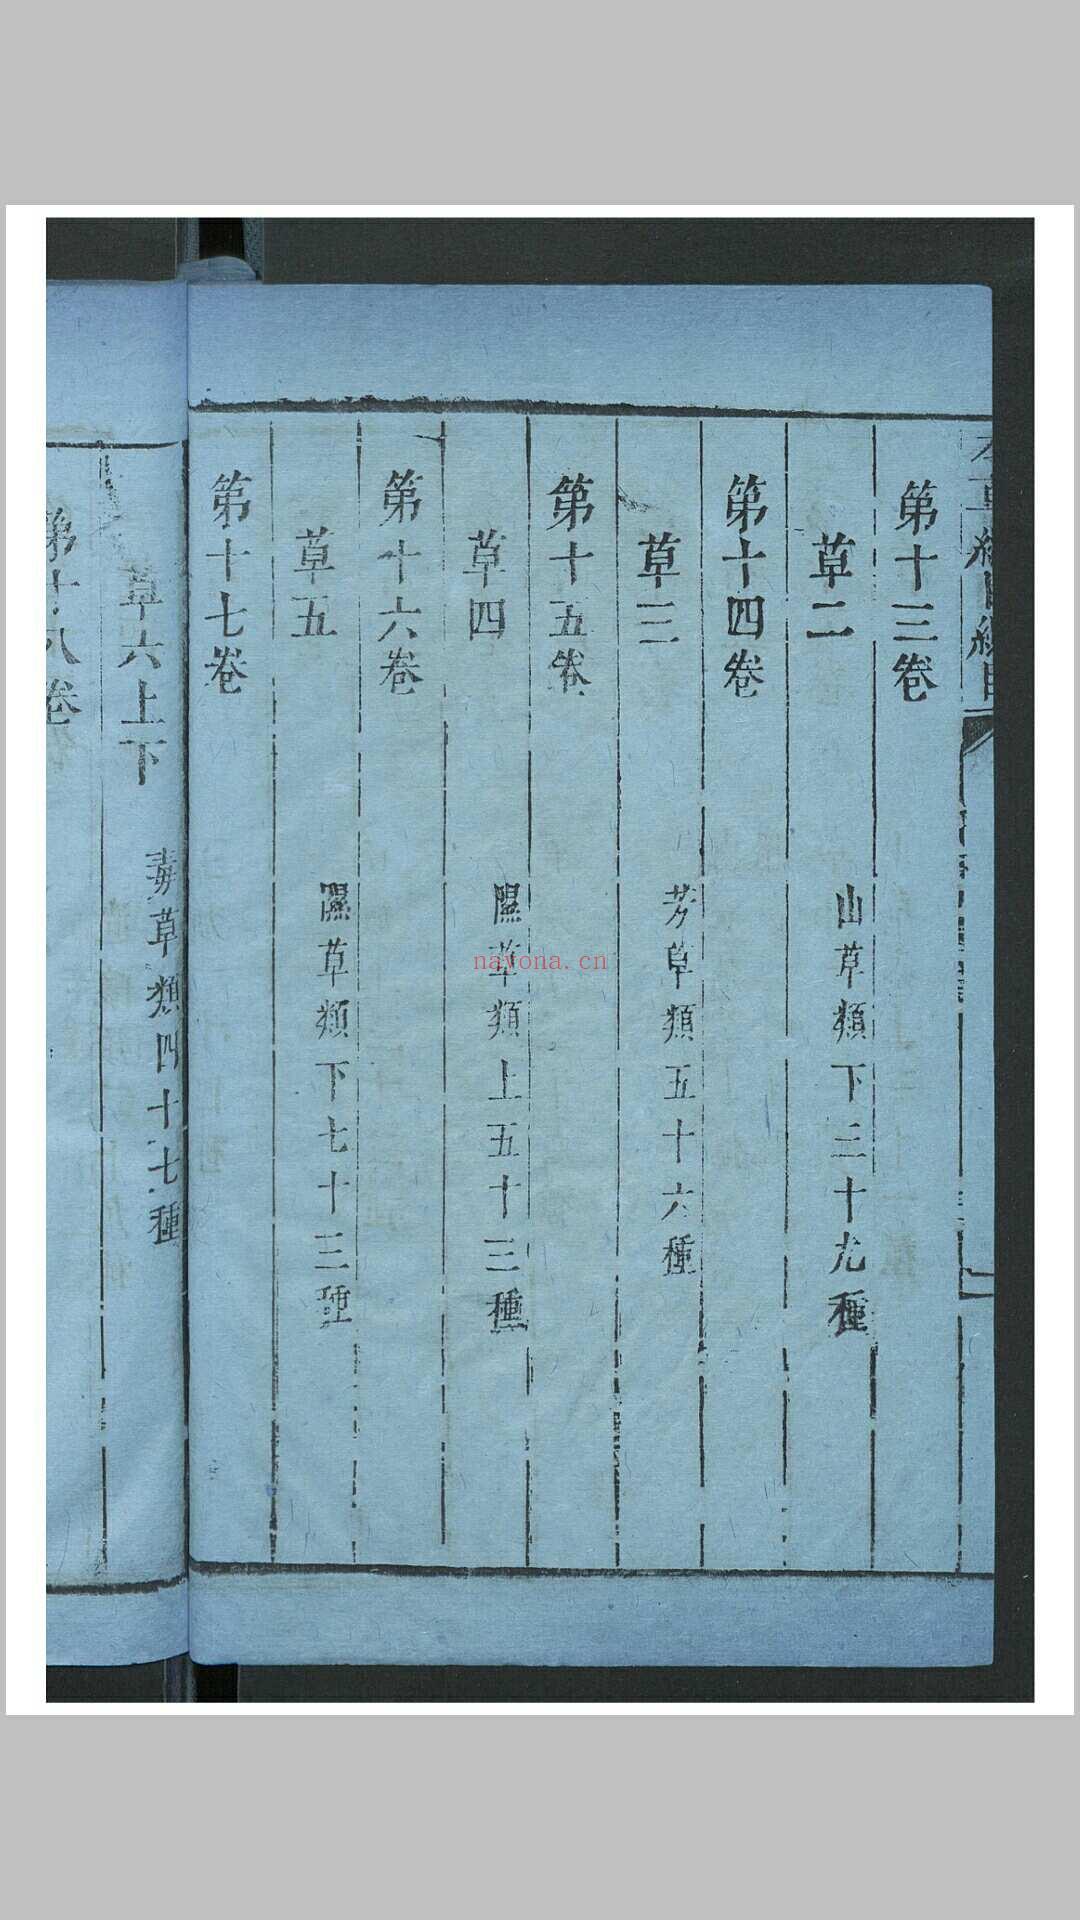 本草綱目總目
第十三卷
草二
山草類下三十九種
第十四卷
草三
芳草類五十六種
第十五卷
草四
隰草類上五十三種
第十六卷
草五
隰草類下七十三種
第十七卷
草六上下
毒草類四十七種
第十八卷
nayona.cn